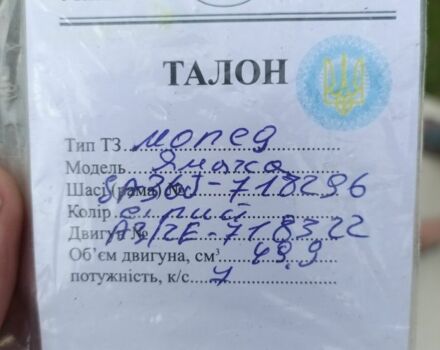 ТАЛОН
Тип ТЗ мопед
Модель Ямаха
Шасі (рама) № SA36J-718296
Колір сірий
Двигун № A312E-718322
Об'єм двигуна, см³ 49,9
потужність, к/с 7